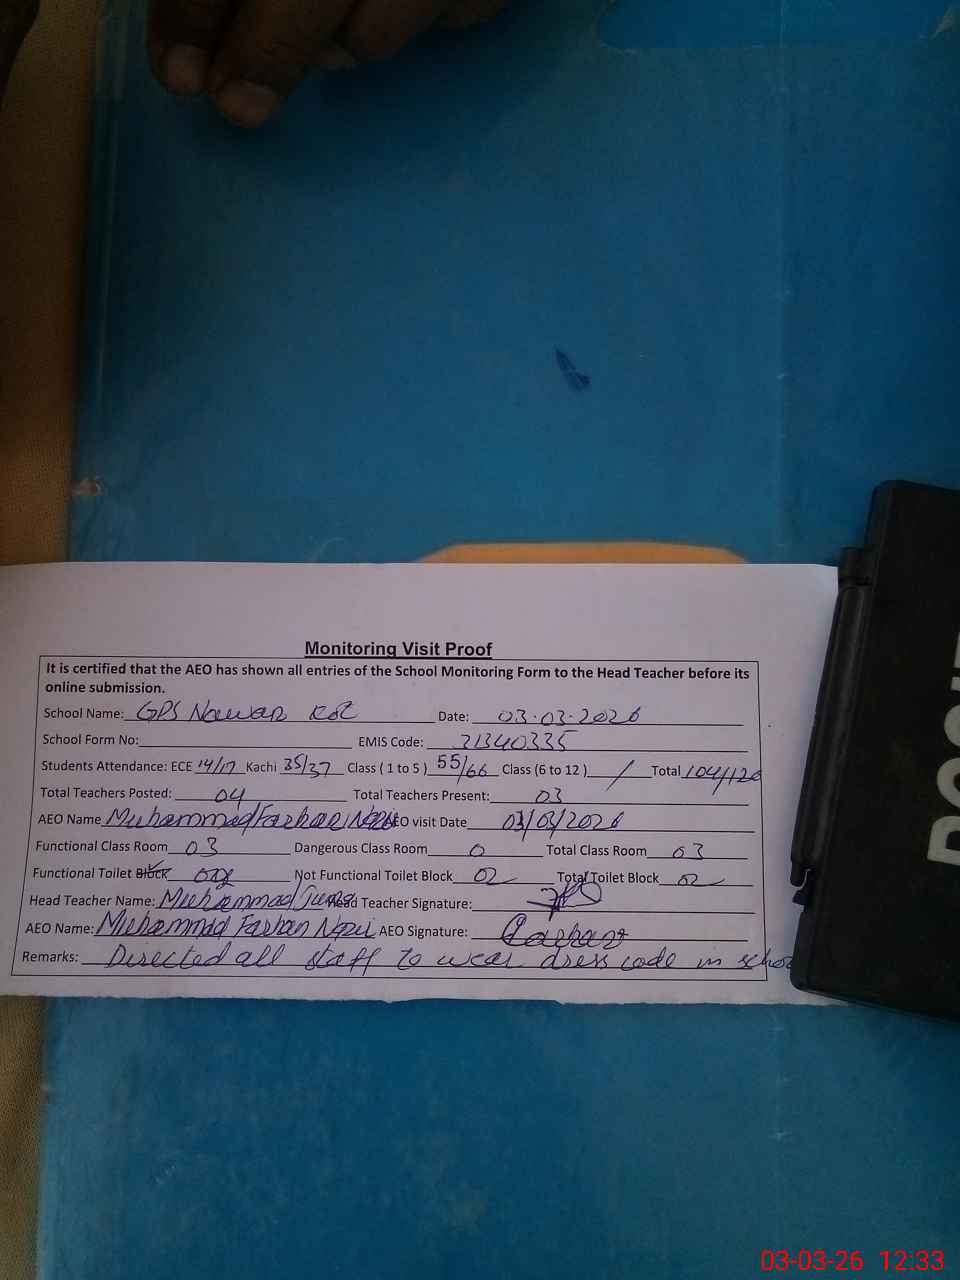 Monitoring Visit Proof
It is certified that the AEO has shown all entries of the School Monitoring Form to the Head Teacher before its
online submission.
School Name: GPS Nawan Kot Date: 03.03.2026
School Form No: EMIS Code: 31340335
Students Attendance: ECE 14/17 Kachi 35/37 Class ( 1 to 5 ) 55/66 Class (6 to 12 ) / Total 104/120
Total Teachers Posted: 04 Total Teachers Present: 03
AEO Name Muhammad Farhan AEO visit Date 03/03/2026
Functional Class Room 03 Dangerous Class Room 0 Total Class Room 03
Functional Toilet Block Not Functional Toilet Block 02 Total Toilet Block 02
Head Teacher Name: Muhammad Head Teacher Signature:
AEO Name: Muhammad Farhan AEO Signature: Farhan
Remarks: Directed all staff to wear dress code in school
03-03-26 12:33